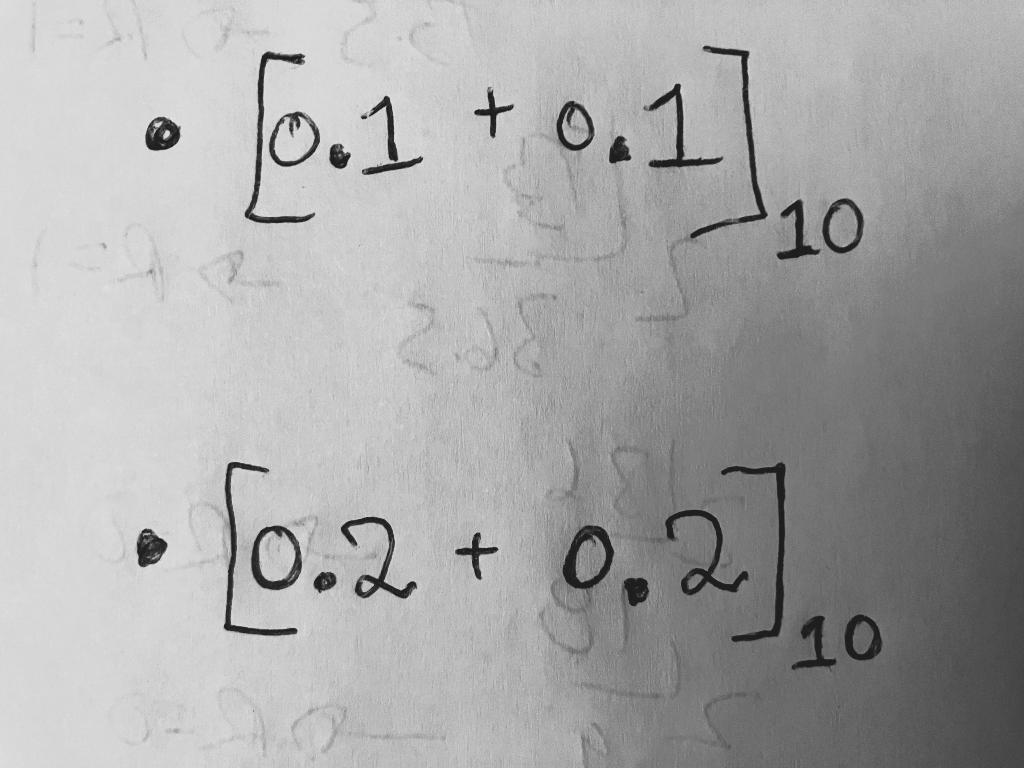 • [0.1 + 0.1]₁₀
• [0.2 + 0.2]₁₀